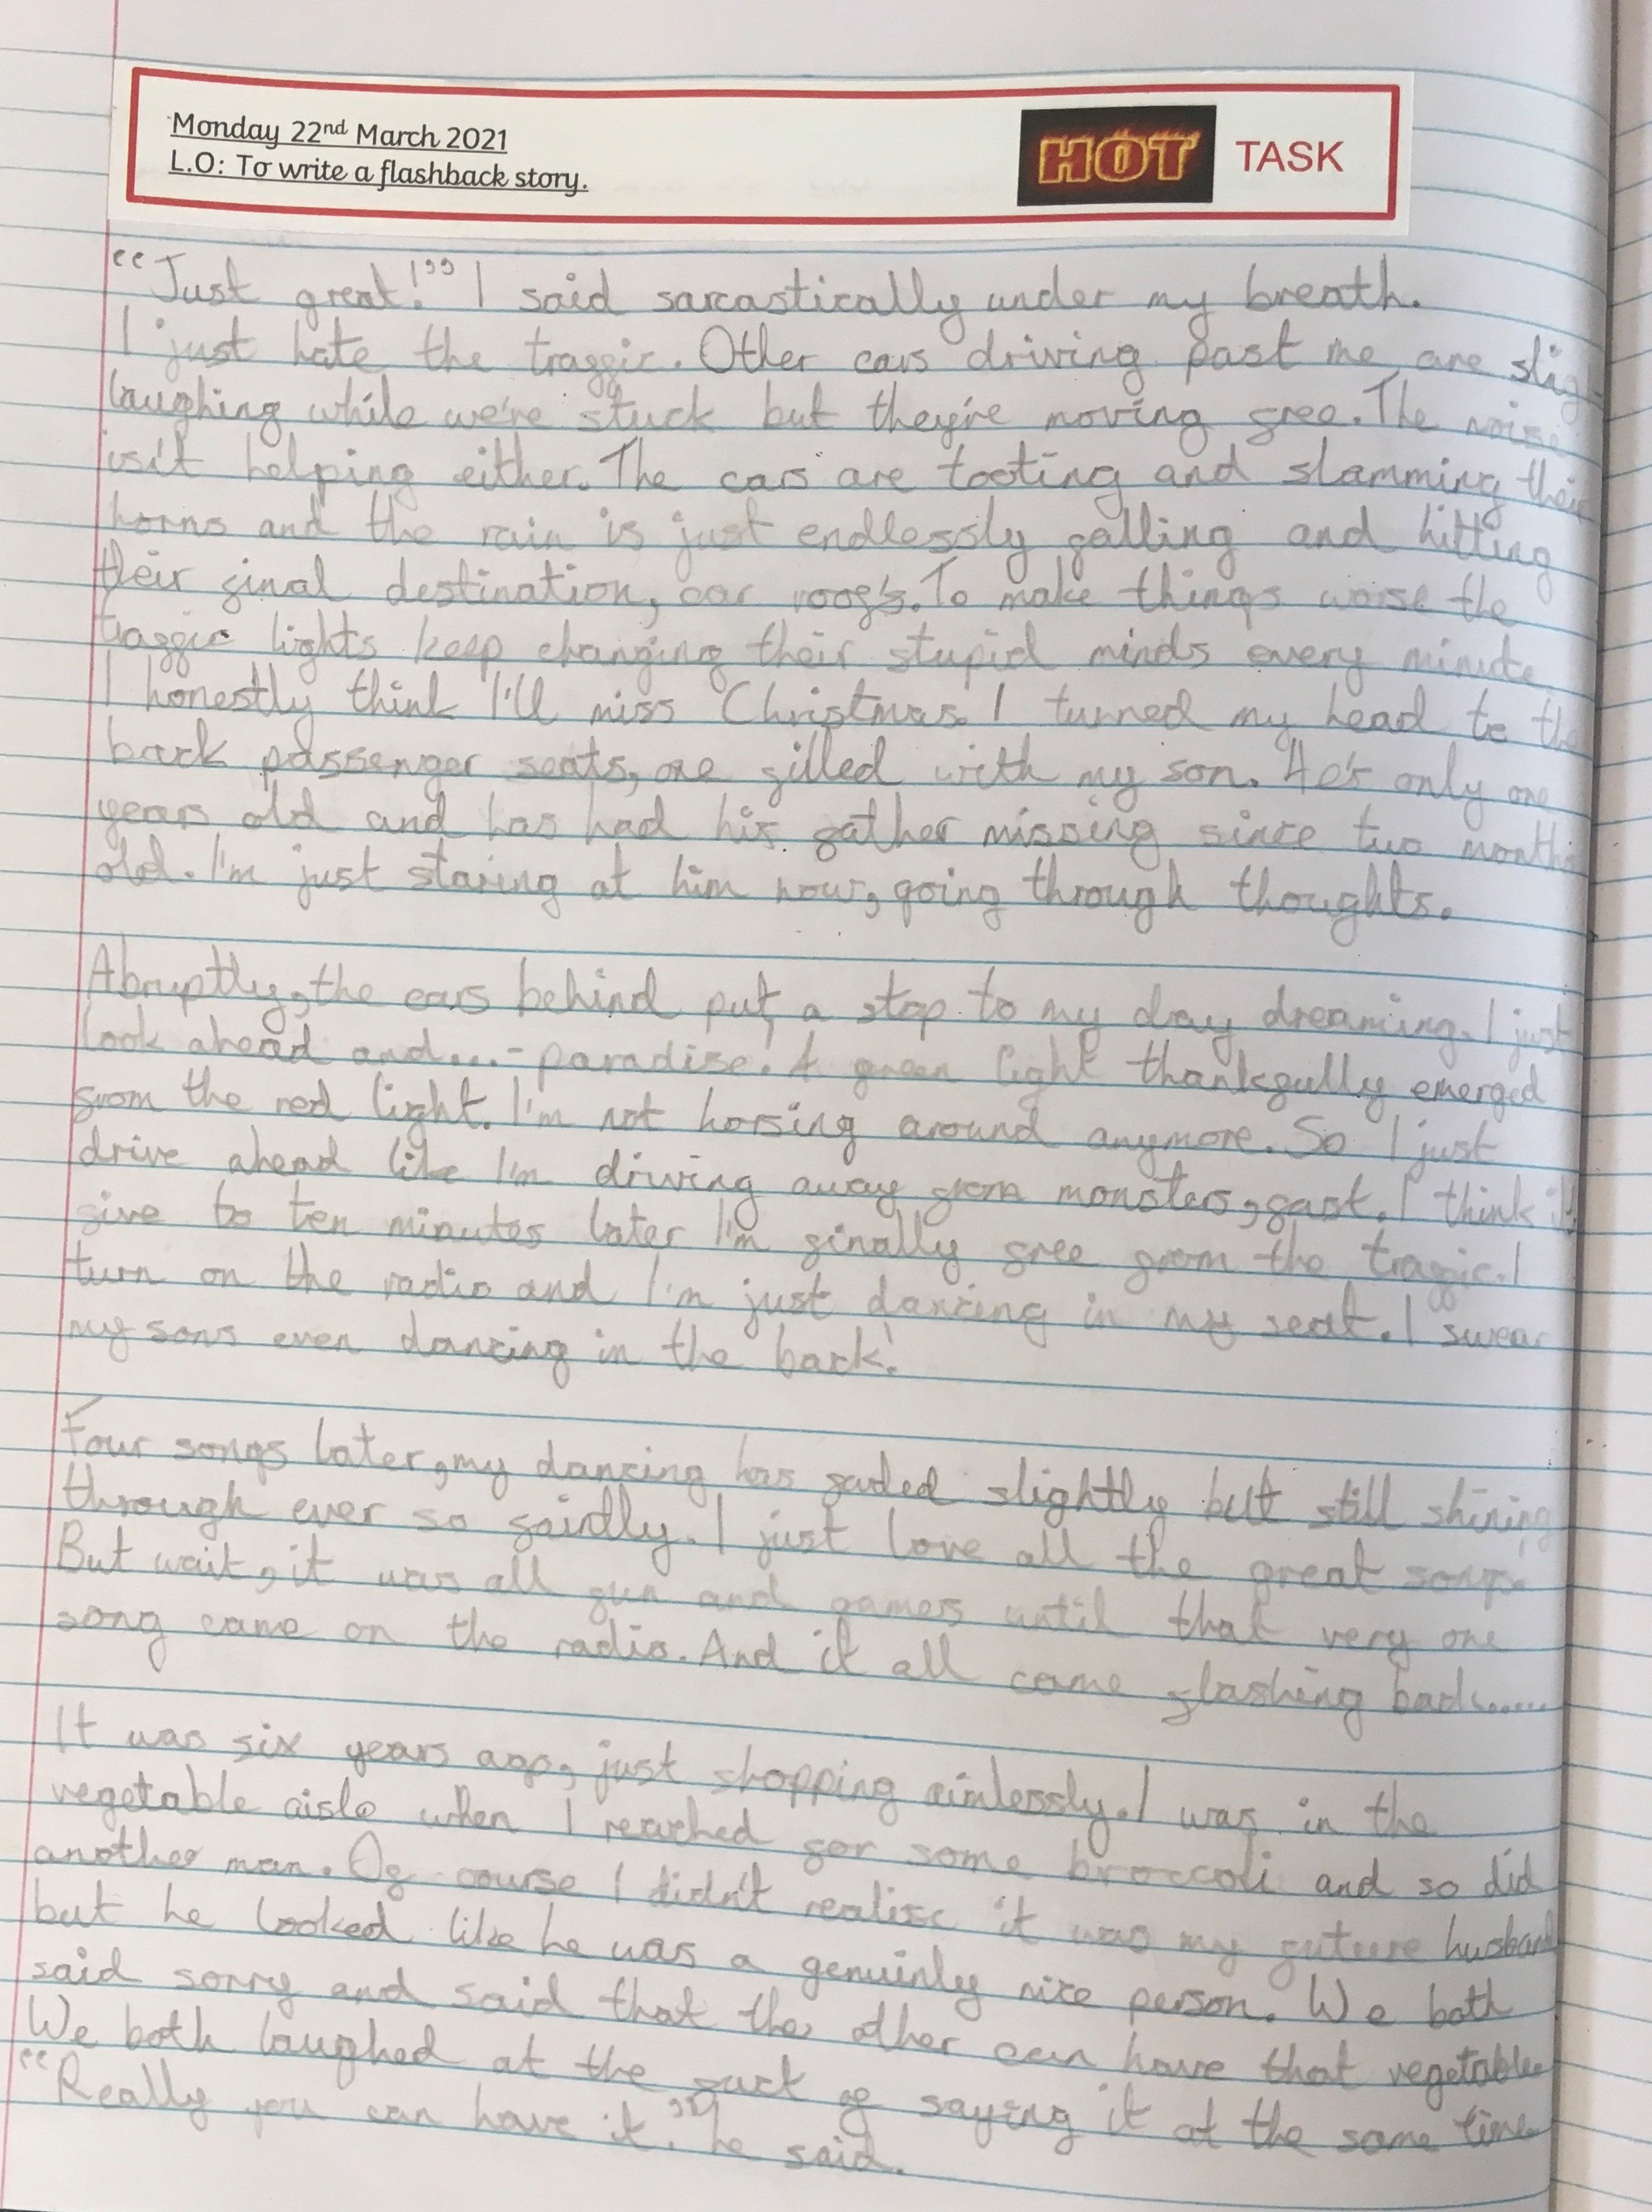 Monday 22nd March 2021
L.O: To write a flashback story.
HOT TASK
"Just great!" I said sarcastically under my breath.
I just hate the traffic. Other cars driving past me are slig-
laughing while we're stuck but they're moving free. The noise
isn't helping either. The cars are tooting and slamming their
horns and the rain is just endlessly falling and hitting
their final destination, car roof's. To make things worse the
traffic lights keep changing their stupid minds every minute.
I honestly think I'll miss Christmas. I turned my head to the
back passenger seats, one filled with my son. He's only one
years old and has had his father missing since two months
old. I'm just staring at him now, going through thoughts.
Abruptly, the cars behind put a stop to my day dreaming. I just
look ahead and....- paradise! A green light thankfully emerged
from the red light. I'm not horsing around anymore. So I just
drive ahead like I'm driving away from monsters, fast. I think it's
five to ten minutes later I'm finally free from the traffic. I
turn on the radio and I'm just dancing in my seat. I swear
my sons even dancing in the back!
Four songs later, my dancing has faded slightly but still shining
through ever so faintly. I just love all the great songs.
But wait, it was all fun and games until that very one
song came on the radio. And it all came flashing back......
It was six years ago, just shopping aimlessly. I was in the
vegetable aisle when I reached for some broccoli and so did
another man. Of course I didn't realise it was my future husband
but he looked like he was a genuinly nice person. We both
said sorry and said that the other can have that vegetable
We both laughed at the fact of saying it at the same time
"Really you can have it." he said.